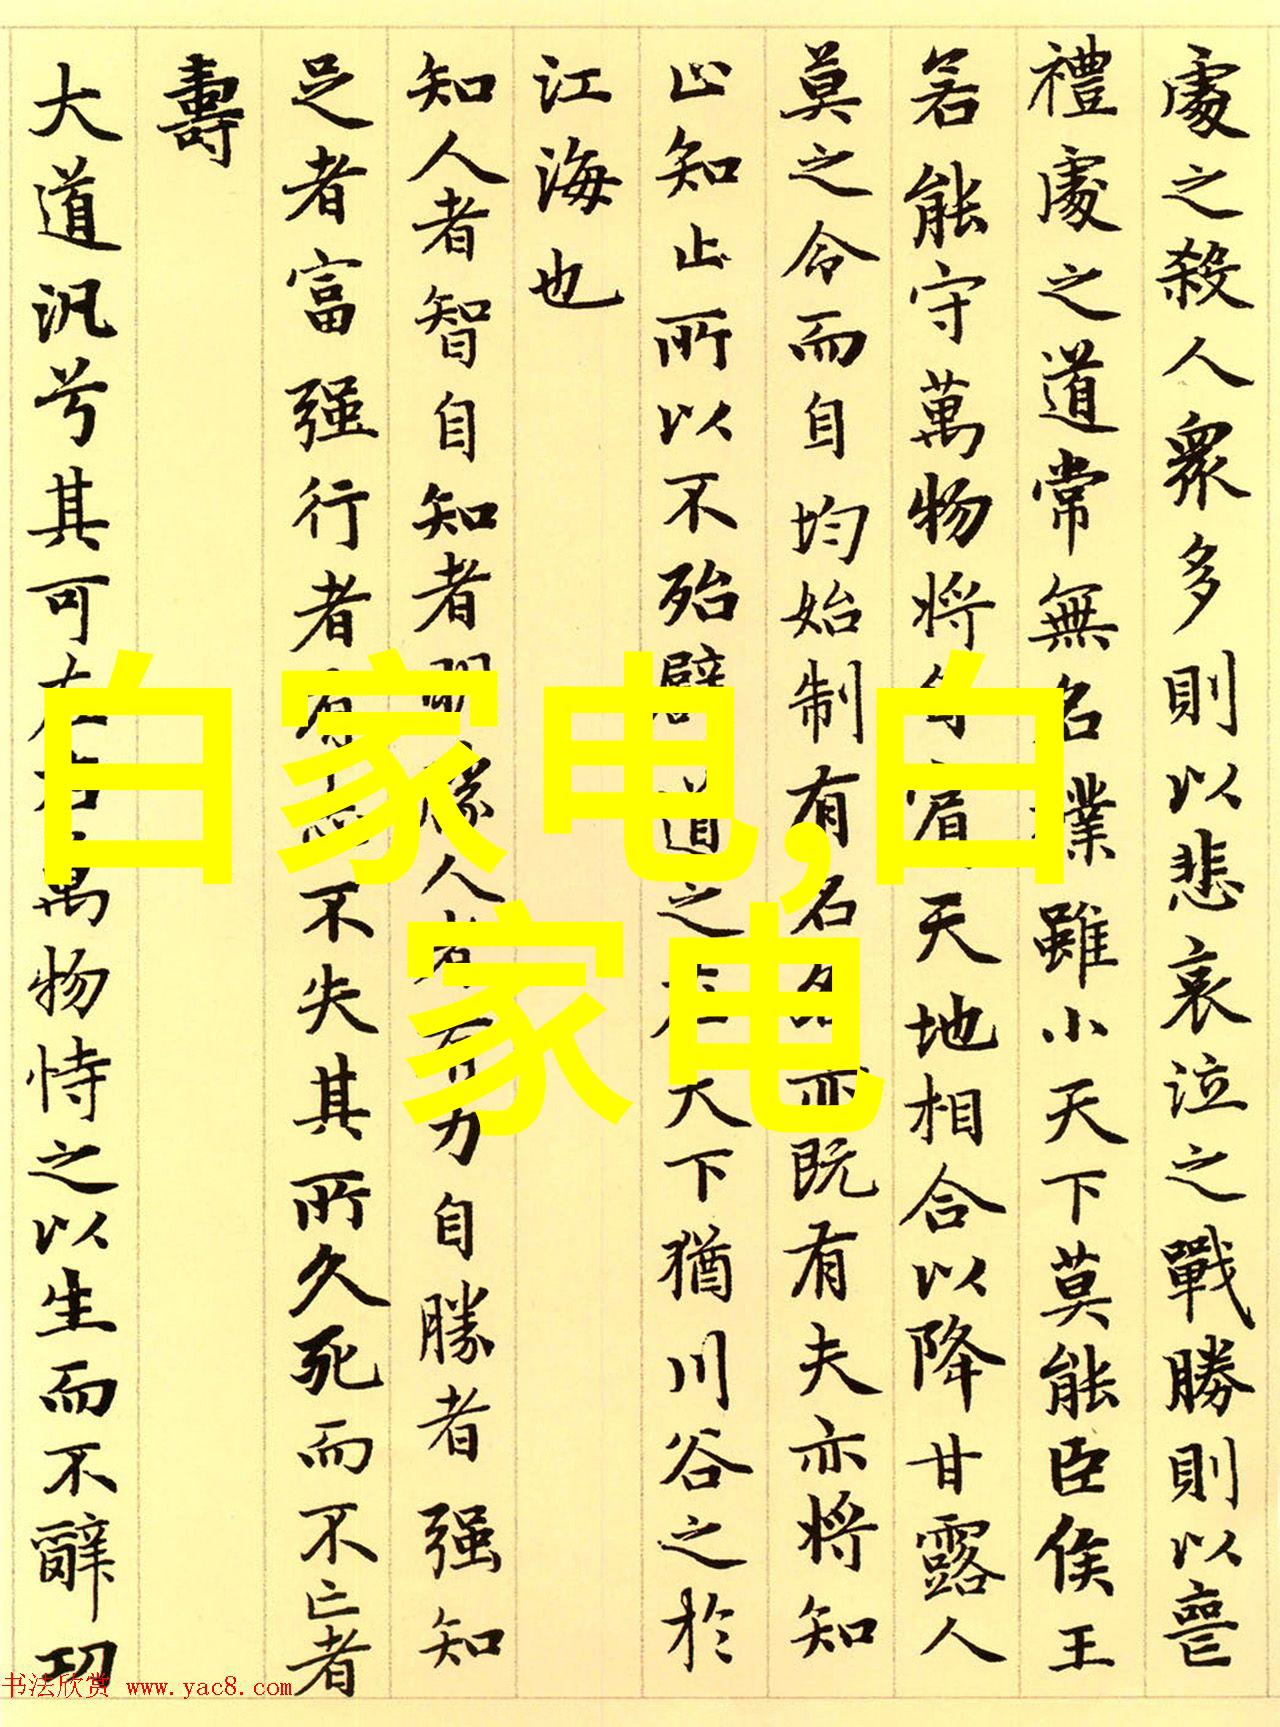 處之殺人衆多則以悲哀泣之戰勝則以喪
禮處之道常無名樸雖小天下莫能臣侯王
若能守萬物將自賓天地相合以降甘露人
莫之令而自均始制有名名亦既有夫亦將知
止知止所以不殆譬道之在天下猶川谷之於
江海也
知人者智自知者明勝人者有力自勝者强知
足者富强行者有志不失其所久死而不亡者
壽
大道汎兮其可左右萬物恃之以生而不辭功
白家电,白
家电
书法欣赏 www.yac8.com